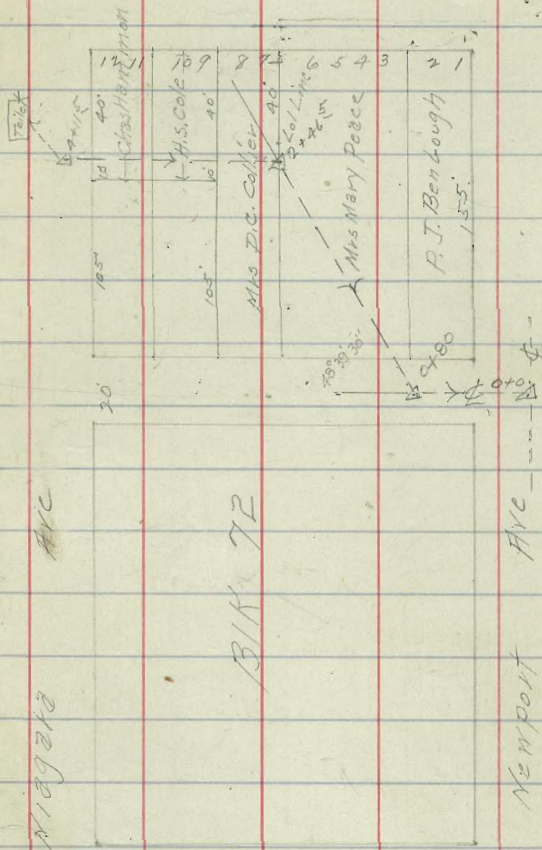 Toilet
4+11.5
12 11 10 9 8 7 6 5 4 3 2 1
10' 40'
Chas Hamilmon
H.S. Cole
40'
10'
Mrs D.C. Collier
40'
Lot Line
2+46.5
Mrs Mary Peace
P.J. Benbough
155'
105'
105'
48° 39' 30"
0+80
0+0
20'
Niagara Ave
Blk 72
Newport Ave